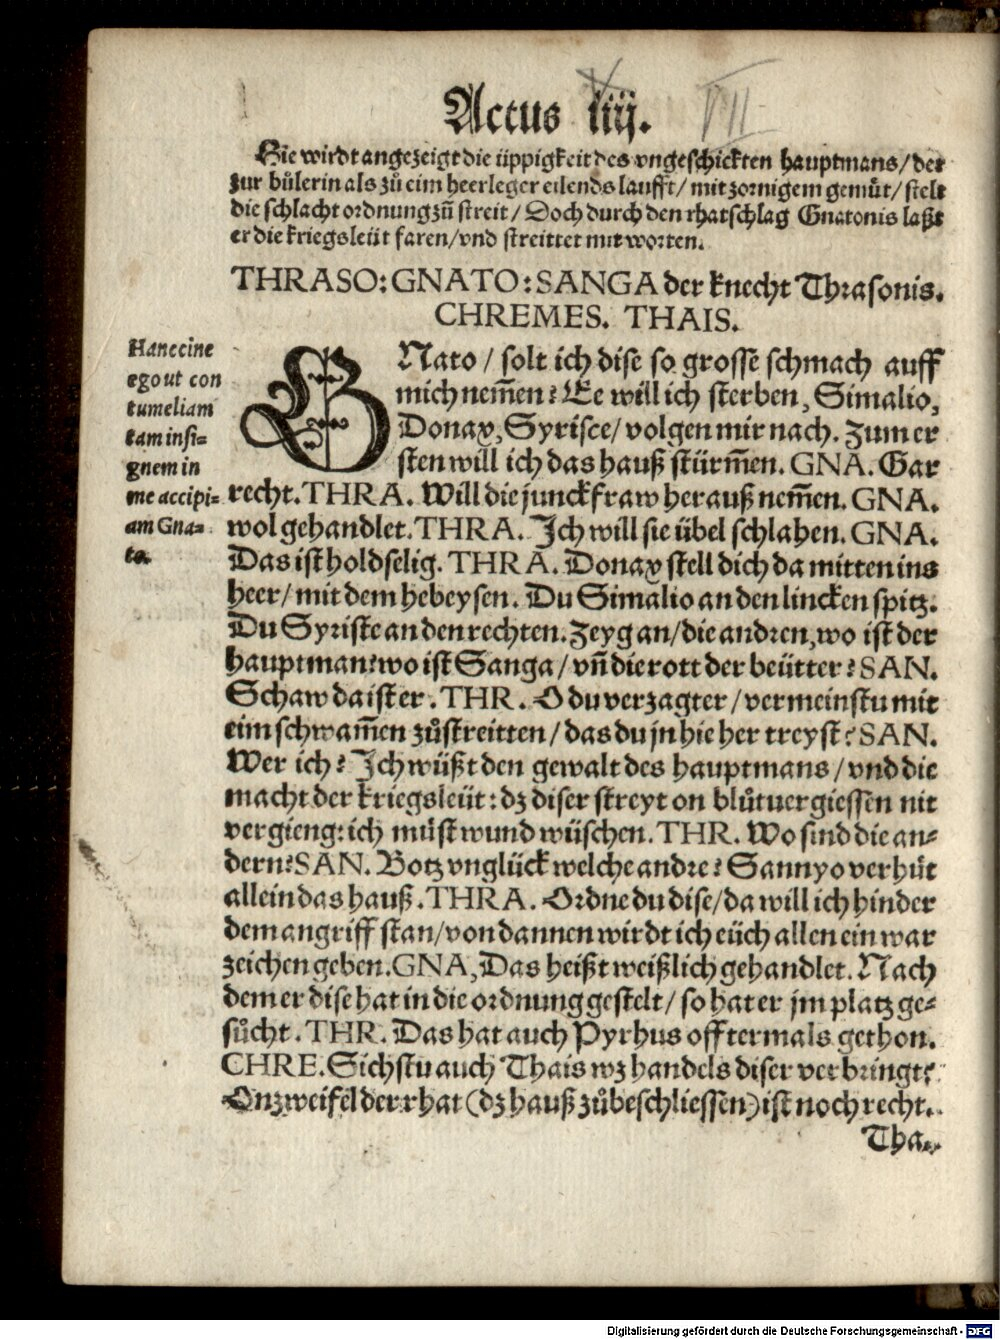 Actus iiij.
VII
Hie wirdt angezeigt die üppigkeit des vngeschickten hauptmans / der
zur bůlerin als zů eim heerleger eilends laufft / mit zornigem gemüt / stelt
die schlacht ordnung zů streit / Doch durch den rhatschlag Gnatonis laßt
er die kriegsleüt faren / vnd streittet mit worten.
THRASO: GNATO: SANGA der knecht Thrasonis.
CHREMES. THAIS.
Hanccine
ego ut con
tumeliam
tam insi=
gnem in
me accipi=
am Gna=
to.
GNato / solt ich dise so grosse schmach auff
mich nem̃en? Ee will ich sterben, Simalio,
Donax, Syrisce / volgen mir nach. Zum er
sten will ich das hauß stürm̃en. GNA. Gar
recht. THRA. Will die junckfraw herauß nem̃en. GNA.
wol gehandlet. THRA. Ich will sie übel schlahen. GNA.
Das ist holdselig. THRA. Donax stell dich da mitten ins
heer / mit dem hebeysen. Du Simalio an den lincken spitz.
Du Syriske an den rechten. Zeyg an / die andren, wo ist der
hauptman? wo ist Sanga / vñ die rott der beütter? SAN.
Schaw da ist er. THR. O du verzagter / vermeinstu mit
eim schwam̃en zůstreitten / das du jn hie her treyst? SAN.
Wer ich? Ich wüßt den gewalt des hauptmans / vnd die
macht der kriegsleüt: dz diser streyt on blůtuergiessen nit
vergieng: ich müst wund wüschen. THR. Wo sind die an=
dern? SAN. Botz vnglück welche andre? Sannyo verhüt
allein das hauß. THRA. Ordne du dise / da will ich hinder
dem angriff stan / von dannen wirdt ich eüch allen ein war
zeichen geben. GNA, Das heißt weißlich gehandlet. Nach
dem er dise hat in die ordnung gestelt / so hat er jm platz ge=
sůcht. THR. Das hat auch Pyrhus offtermals gethon.
CHRE. Sichstu auch Thais wz handels diser verbringt?
Onzweifel der rhat (dz hauß zůbeschliessen) ist noch recht.
Tha.
Digitalisierung gefördert durch die Deutsche Forschungsgemeinschaft - DFG